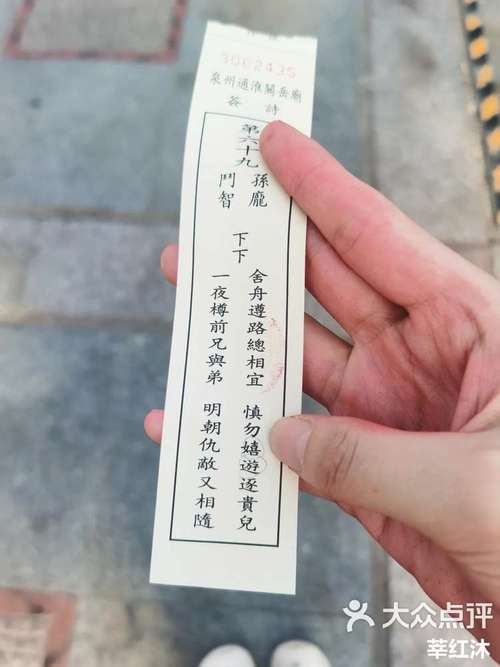 3002435
泉州通淮關岳廟
簽詩
第六十九
孫龐
鬥智
下下
舍舟遵路總相宜
慎勿嬉遊逐貴兒
一夜樽前兄與弟
明朝仇敵又相隨
大众点评
莘红沐